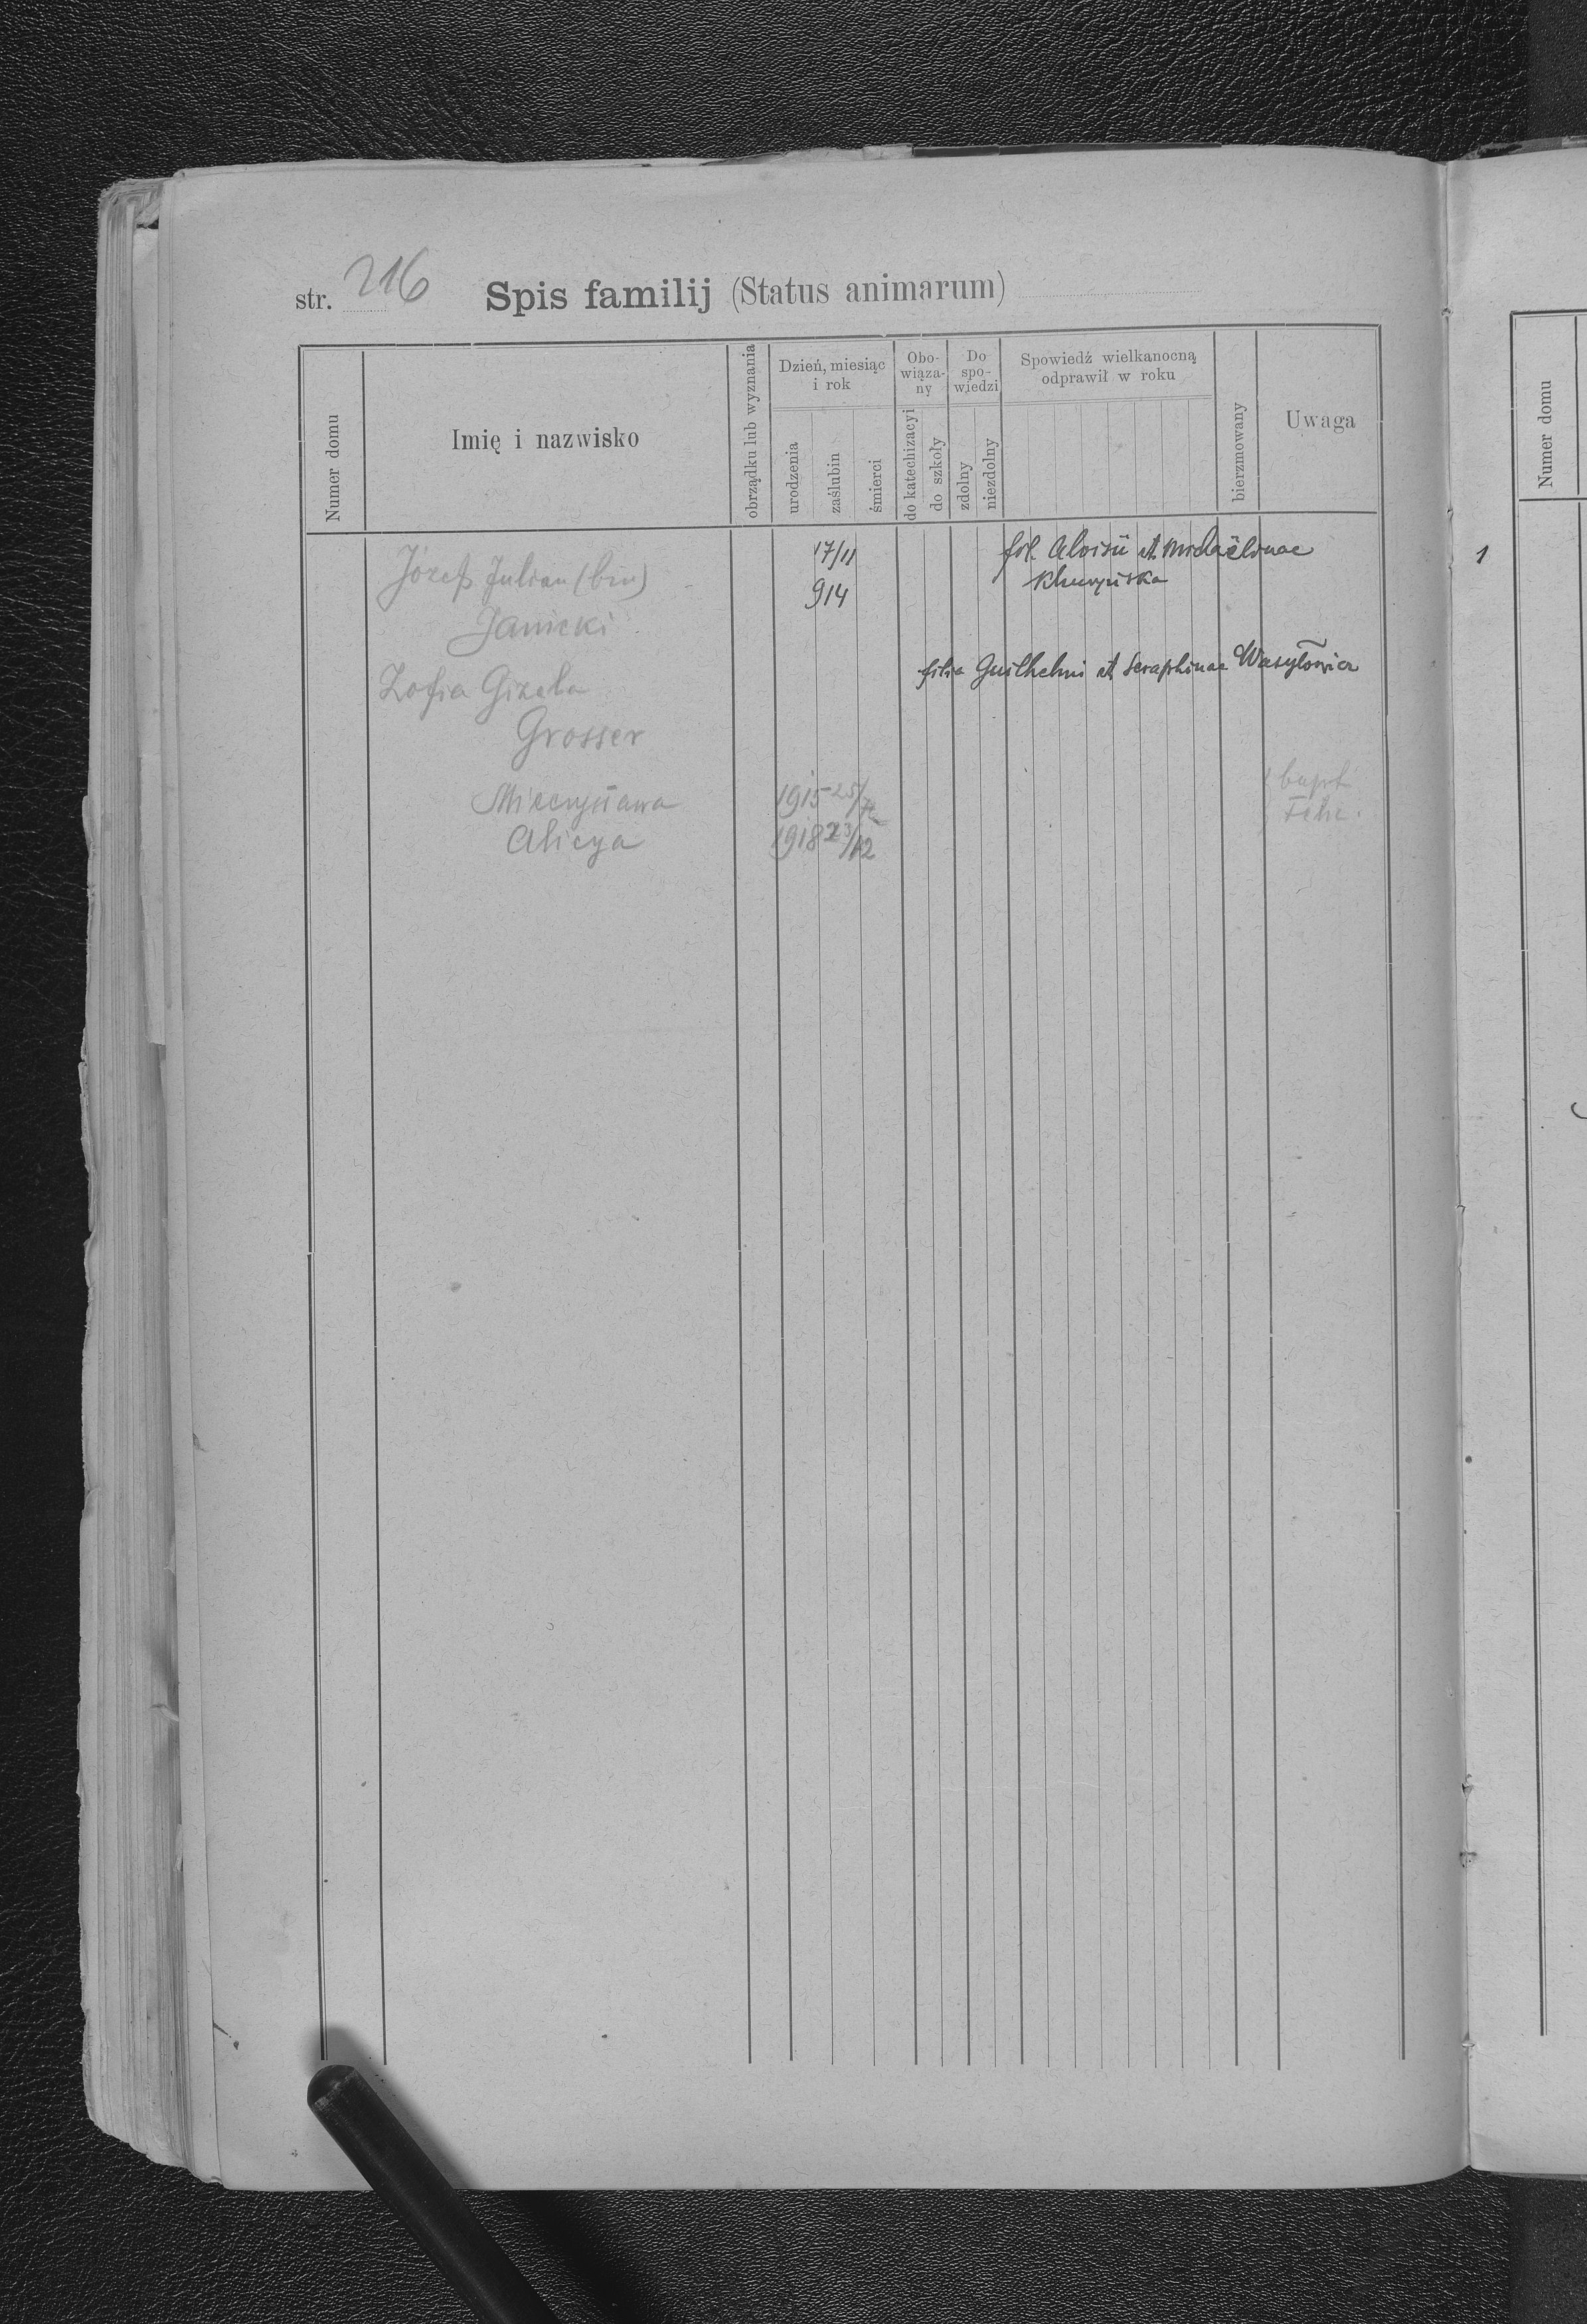 str. 216 Spis familij (Status animarum)
Numer domu
Imię i nazwisko
obrządku lub wyznania
Dzień, miesiąc i rok
urodzenia
zaślubin
śmierci
Obo-
wiąza-
ny
do katechizacyi
do szkoły
Do
spo-
wiedzi
zdolny
niezdolny
Spowiedź wielkanocną
odprawił w roku
bierzmowany
Uwaga
Numer domu
Józef Julian (bin) 17/11 fil. Aloisii et Michaëlinae
914
Janicki
Zofia Gizela filia Guilhelmi et Seraphinae Wasyłowicz
Grosser
Mieczysława 1915 25/ bapt
Alicya 1918 23/12
1